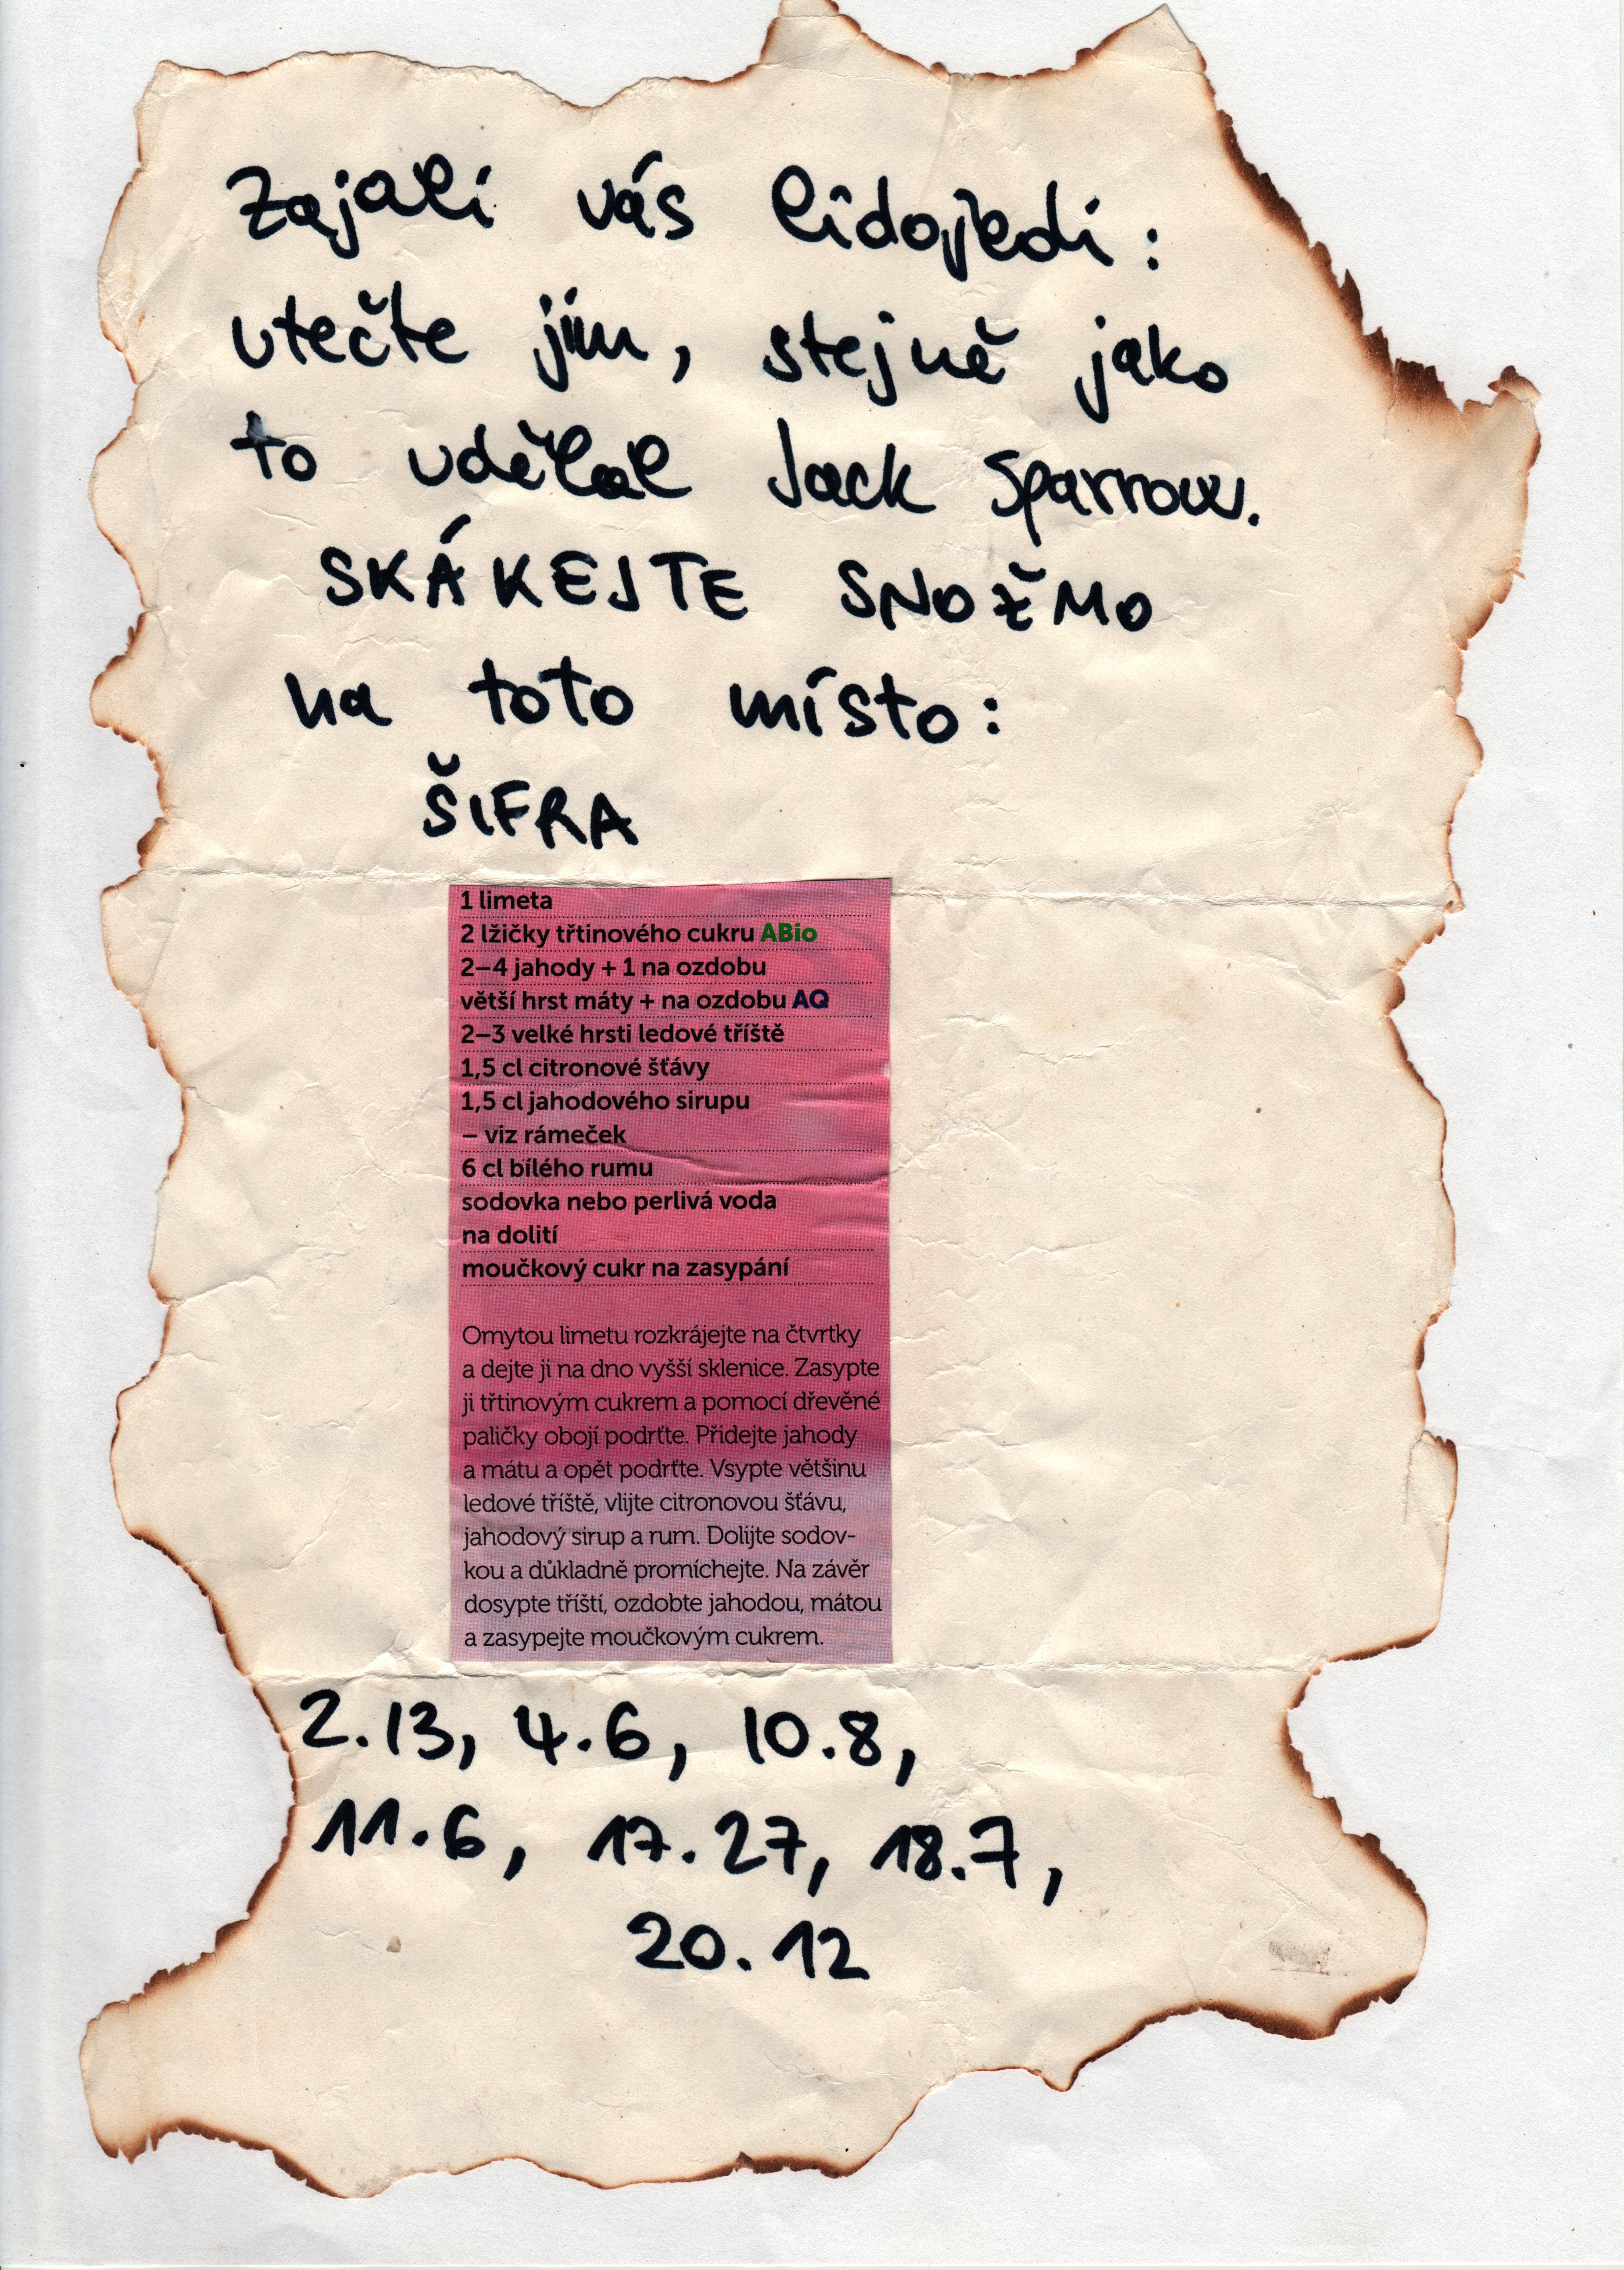 Zajali vás lidojedi:
utečte jim, stejně jako
to udělal Jack Sparrow.
SKÁKEJTE SNOŽMO
na toto místo:
ŠIFRA
1 limeta
2 lžičky třtinového cukru ABio
2–4 jahody + 1 na ozdobu
větší hrst máty + na ozdobu AQ
2–3 velké hrsti ledové tříště
1,5 cl citronové šťávy
1,5 cl jahodového sirupu
– viz rámeček
6 cl bílého rumu
sodovka nebo perlivá voda
na dolití
moučkový cukr na zasypání
Omytou limetu rozkrájejte na čtvrtky
a dejte ji na dno vyšší sklenice. Zasypte
ji třtinovým cukrem a pomocí dřevěné
paličky obojí podrťte. Přidejte jahody
a mátu a opět podrťte. Vsypte většinu
ledové tříště, vlijte citronovou šťávu,
jahodový sirup a rum. Dolijte sodov-
kou a důkladně promíchejte. Na závěr
dosypte tříští, ozdobte jahodou, mátou
a zasypejte moučkovým cukrem.
2.13, 4.6, 10.8,
11.6, 17.27, 18.7,
20.12